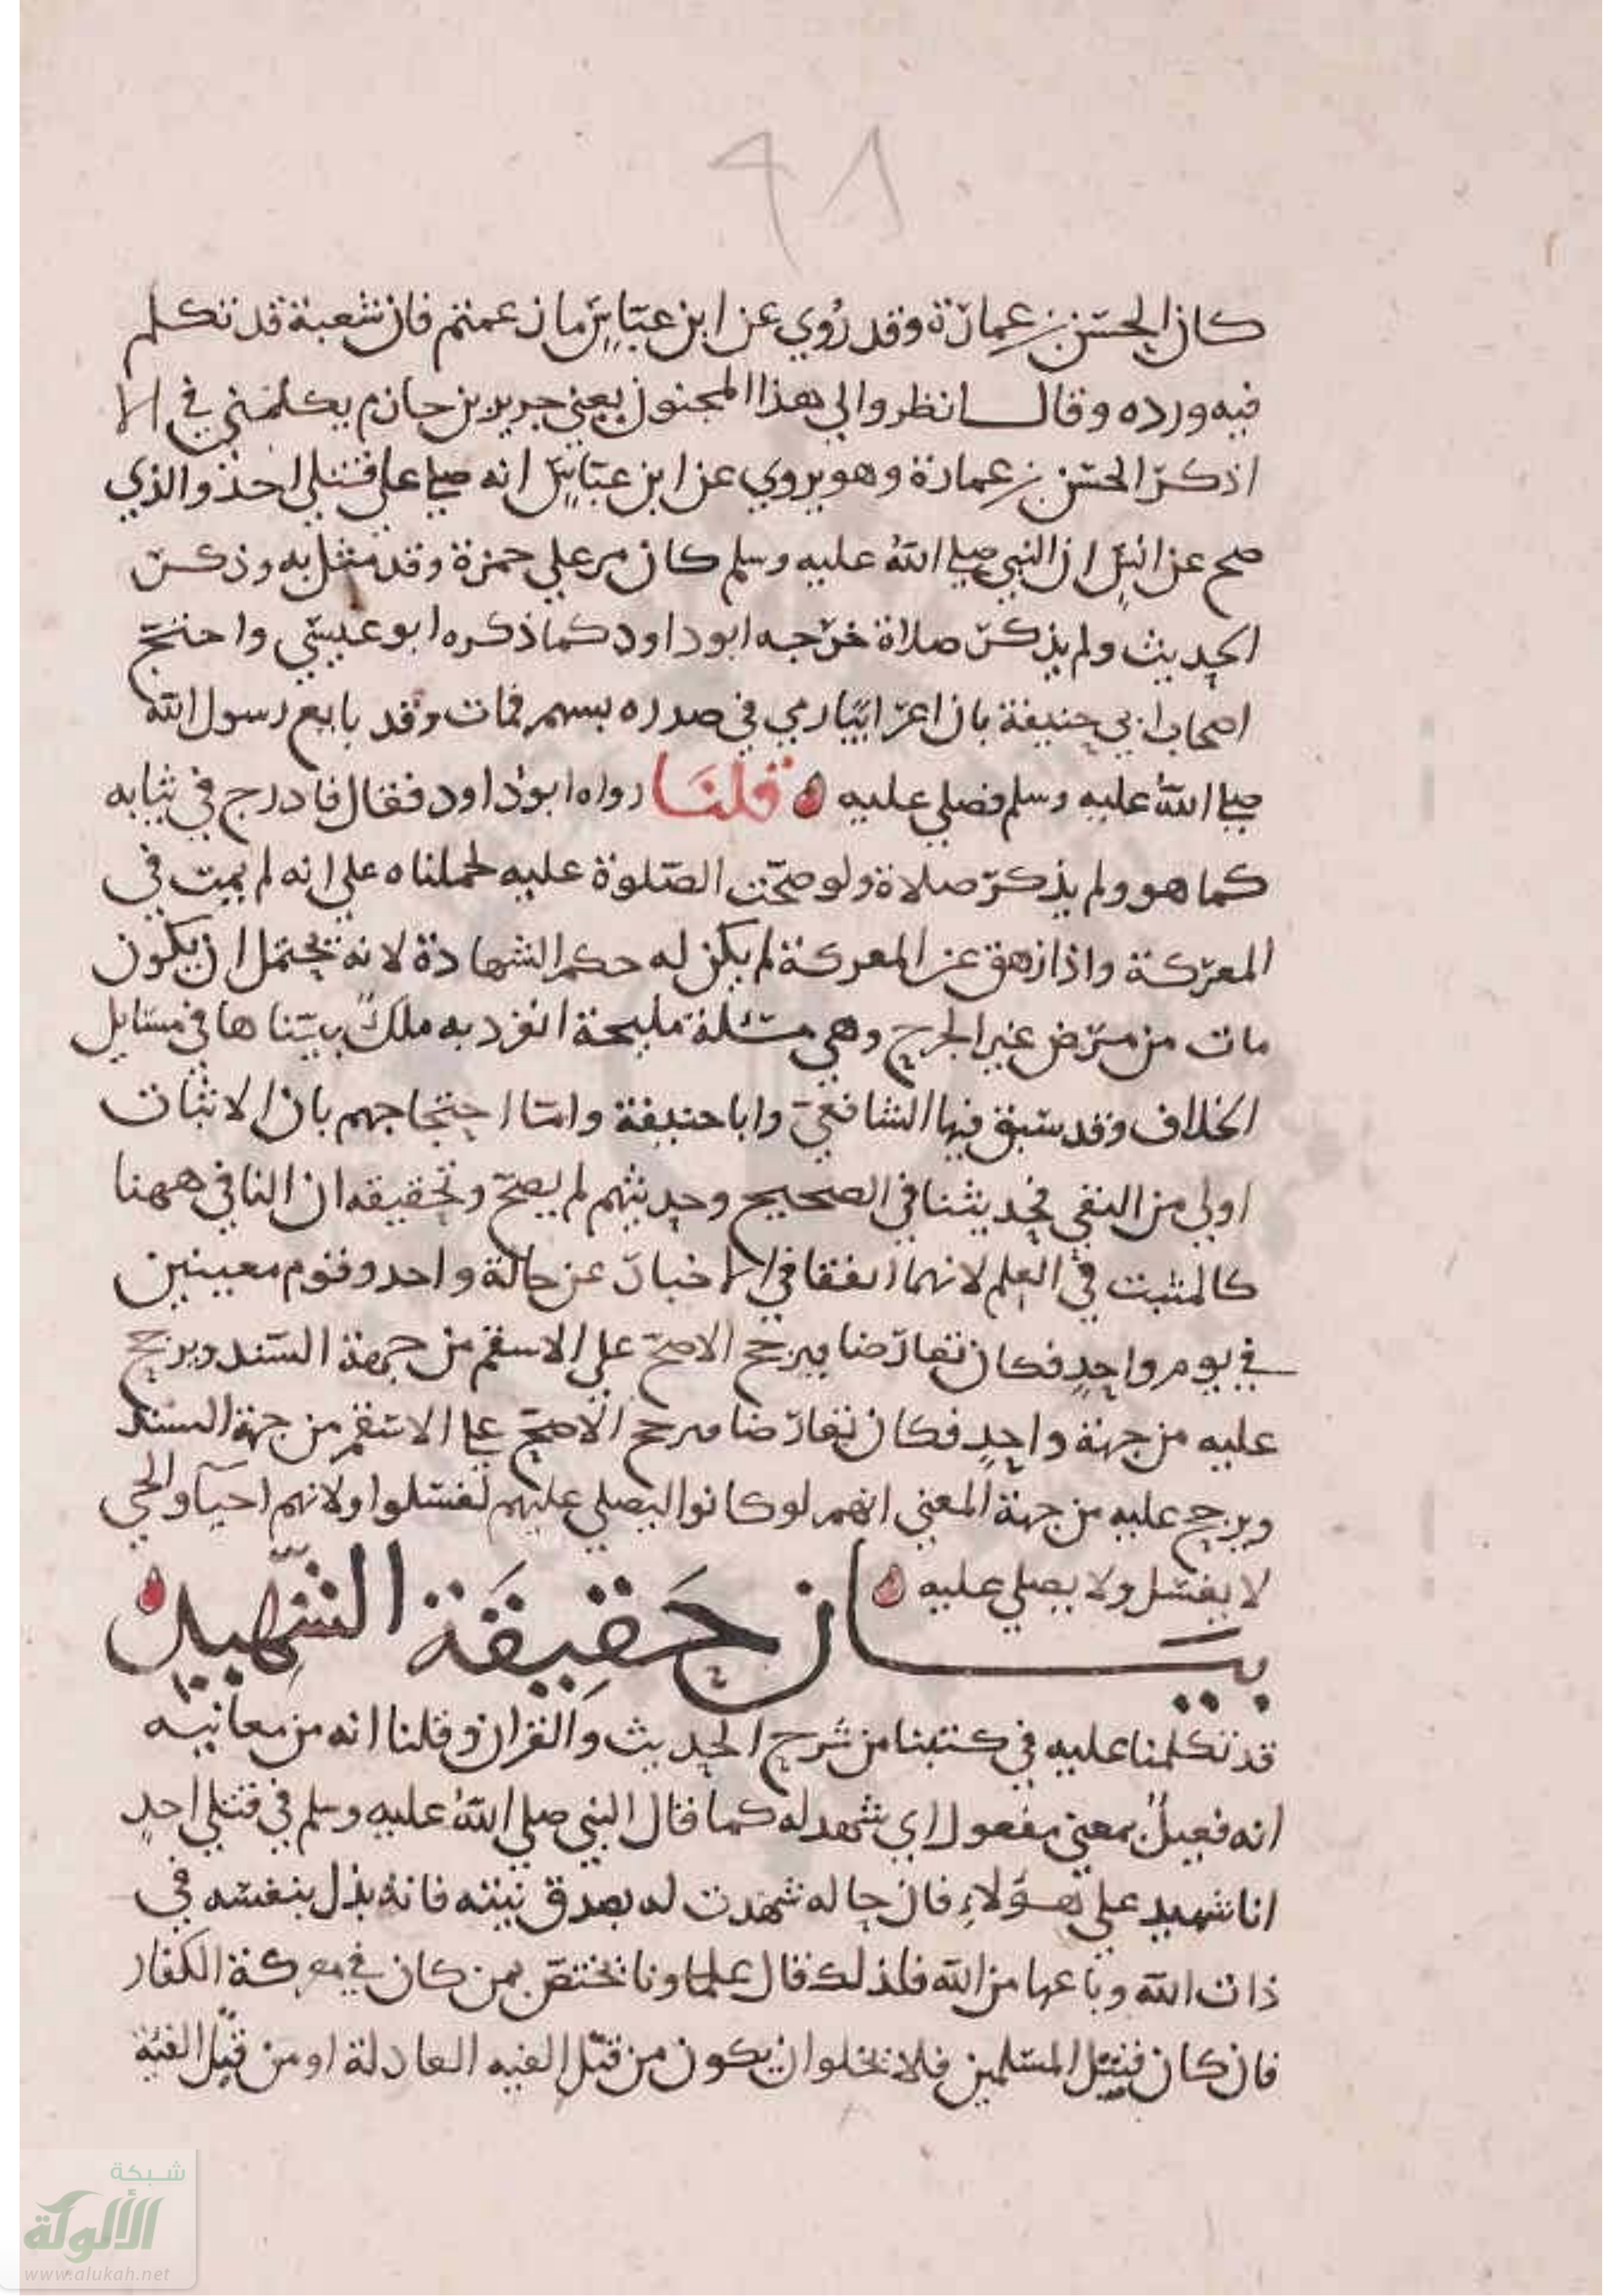 ٩٨
كان الحسن بن عمارة وقد روي عن ابن عباس ما زعمتم فان شعبة قد تكلم
فيه ورده وقال انظروا الي هذا المجنون يعني جرير بن حازم يكلمني في الا
اذكر الحسن بن عمارة وهو يروي عن ابن عباس انه صلي علي قتلي احد والذي
صح عن انس ان النبي صلي الله عليه وسلم كان مر علي حمزة وقد مثل به وذكر
الحديث ولم يذكر صلاة خرجه ابو داود كما ذكره ابو عيسي واحتج
اصحاب ابي حنيفة بان اعرابيا رمي في صدره بسهم فمات وقد بايع رسول الله
صلي الله عليه وسلم فصلي عليه ه قلنا رواه ابو داود فقال فادرج في ثيابه
كما هو ولم يذكر صلاة ولو صحت الصلوة عليه لحملناه علي انه لم يمت في
المعركة واذا زهق عن المعركة لم يكن له حكم الشهادة لانه يحتمل ان يكون
مات من مرض غير الجرح وهي مسئلة مليحة انفرد به ملك بيناها في مسايل
الخلاف وقد سبق فيها الشافعي وابا حنيفة واما احتجاجهم بان الاثبات
اولي من النفي فحديثنا في الصحيح وحديثهم لم يصح وتحقيقه ان النافي ههنا
كالمثبت في العلم لانهما اتفقا في الاخبار عن حالة واحد وقوم معينين
في يوم واحد فكان تعارضا فيرجح الاصح علي الاسقم من جهة السند ويرجح
عليه من جهة واحد فكان تعارضا فيرجح الاصح علي الاسقم من جهة السند
ويرجح عليه من جهة المعني انهم لو كانوا ليصلي عليهم لغسلوا ولانهم احيآ والحي
لا يغسل ولا يصلي عليه ه
بيان حقيقة الشهيد ه
قد تكلمنا عليه في كتبنا من شرح الحديث والقران وقلنا انه من معانيه
انه فعيل بمعني مفعول اي شهد له كما قال النبي صلي الله عليه وسلم في قتلي احد
انا شهيد علي هؤلاء فان حاله شهدت له بصدق نيته فانه بذل بنفسه في
ذات الله وباعها من الله فلذلك قال علماونا يختص بمن كان في معركة الكفار
فان كان قتيل المسلمين فلا يخلوا ان يكون من قبل الفيه العادلة او من قبل الفئة
شبكة
الألوكة
www.alukah.net